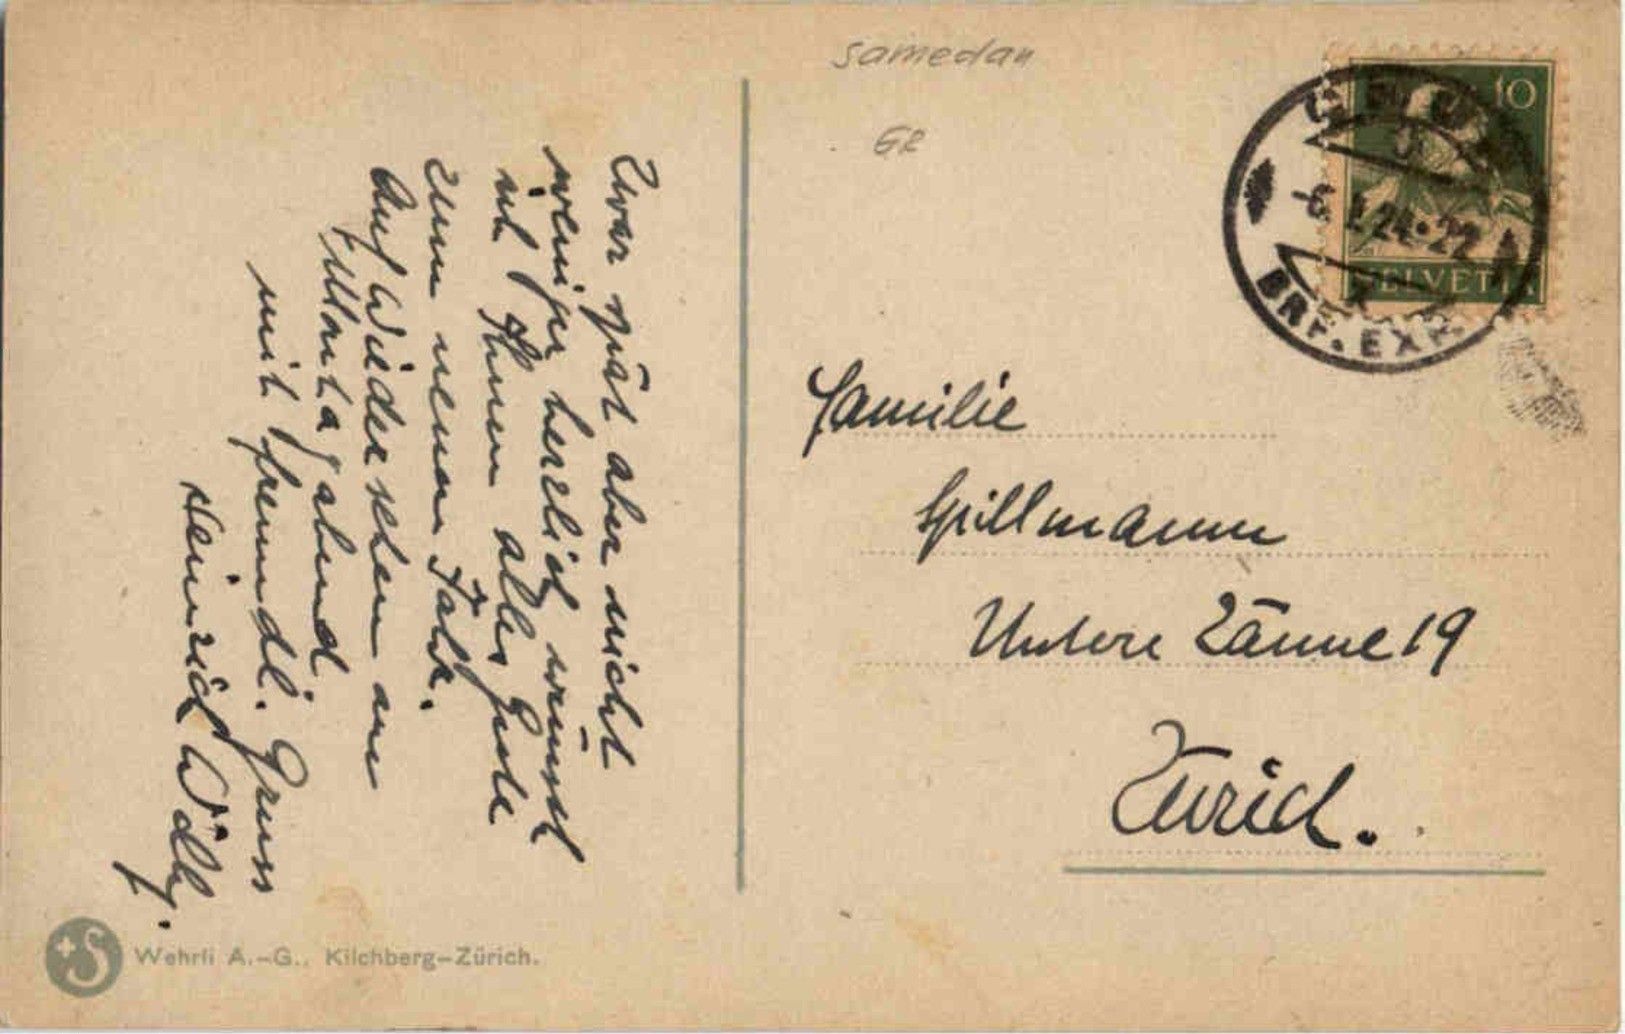 Zwar spät aber nicht
weniger herzlich wünscht
ich Ihnen alles Gute
zum neuen Jahr.
Auf Wiedersehen am
Montag abend
mit freundl. Gruss
Heinrich
Samedan
GR
10
HELVETIA
6. 1. 24. 22
BRF. EXP.
Familie
Spillmann
Untere Zäune 19
Zürich.
Wehrli A.-G., Kilchberg-Zürich.